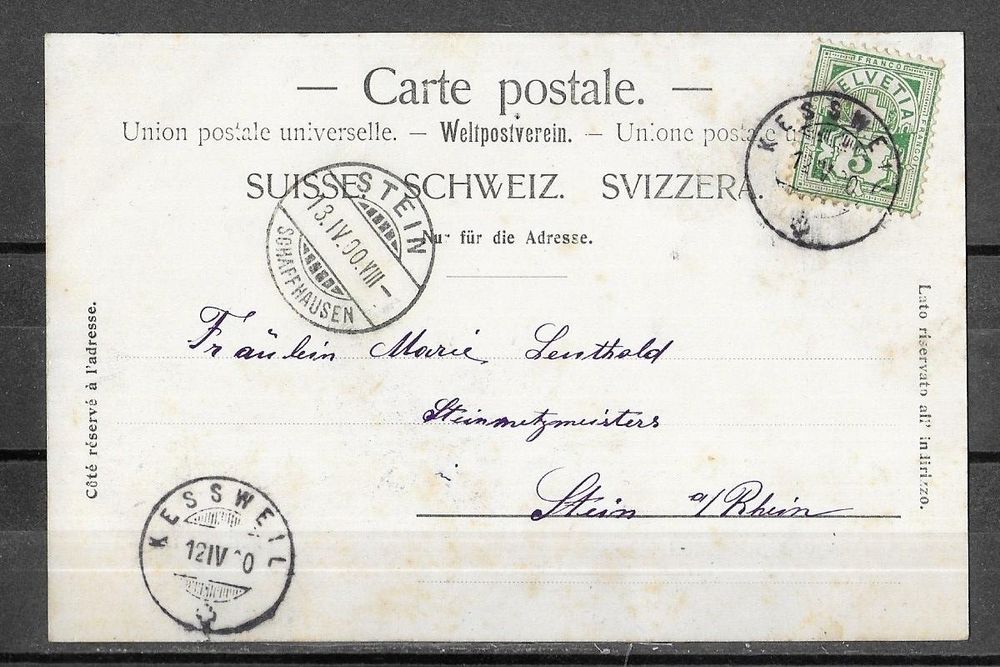 — Carte postale. —
Union postale universelle. — Weltpostverein. — Unione postale u
SUISSE. SCHWEIZ. SVIZZERA.
Nur für die Adresse.
FRANCO
HELVETIA
5
KESSWEIL
12 IV 0
STEIN
13.IV.00.VIII–
SCHAFFHAUSEN
Côté réservé à l'adresse.
Lato riservato all' indirizzo.
Fräulein Marie Leuthold
Steinmetzmeisters
Stein a/Rhein
KESSWEIL
12 IV 0